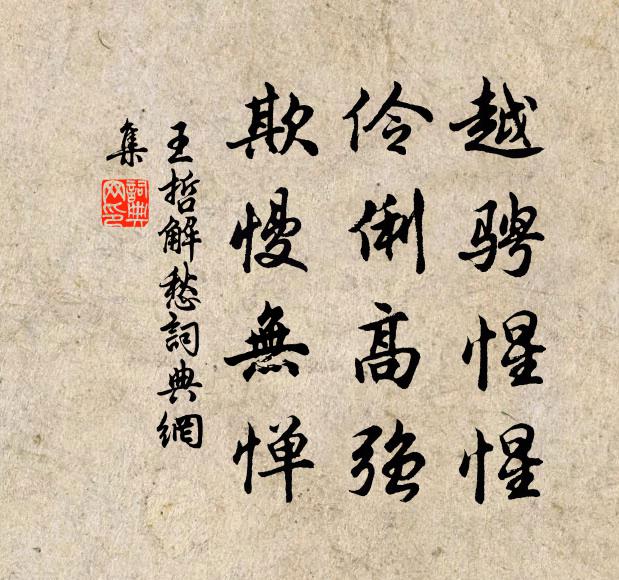 越骋惺惺
伶俐高強
欺慢無惮
王哲解愁詞典網
集
詞典网印